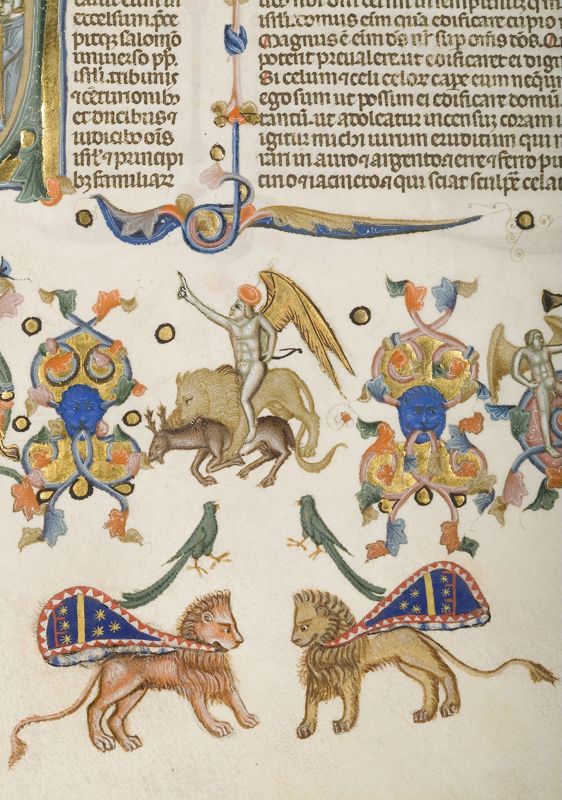 excelsum. p̄ce
pitq; salomō
uniuerso pp̄.
isr̄l. tribunis
⁊ cēturionib;
et ducibus ⁊
iudicib; oīs
isr̄l ⁊ principi
b; familiaꝝ
isr̄l. domus eīm quā edificare cupio
magnus ē eīm ds̄ nr̄ sup̄ om̄s dōs.
poterit preualere. ut edificet ei dign
Si celum ⁊ celi celoꝝ cape eum neq̄un
ego sum ut possim ei edificare domū.
tantū. ut adoleatur incensuꝫ coram i
igitur michi uirum eruditum qui n
rari in auro ⁊ argento ⁊ erre ⁊ ferro pu
cino ⁊ iacincto ⁊ qui sciat sculpe celat